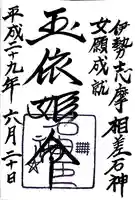 伊勢志摩相差石神
女願成就
玉依姫命
平成二十九年六月二十日